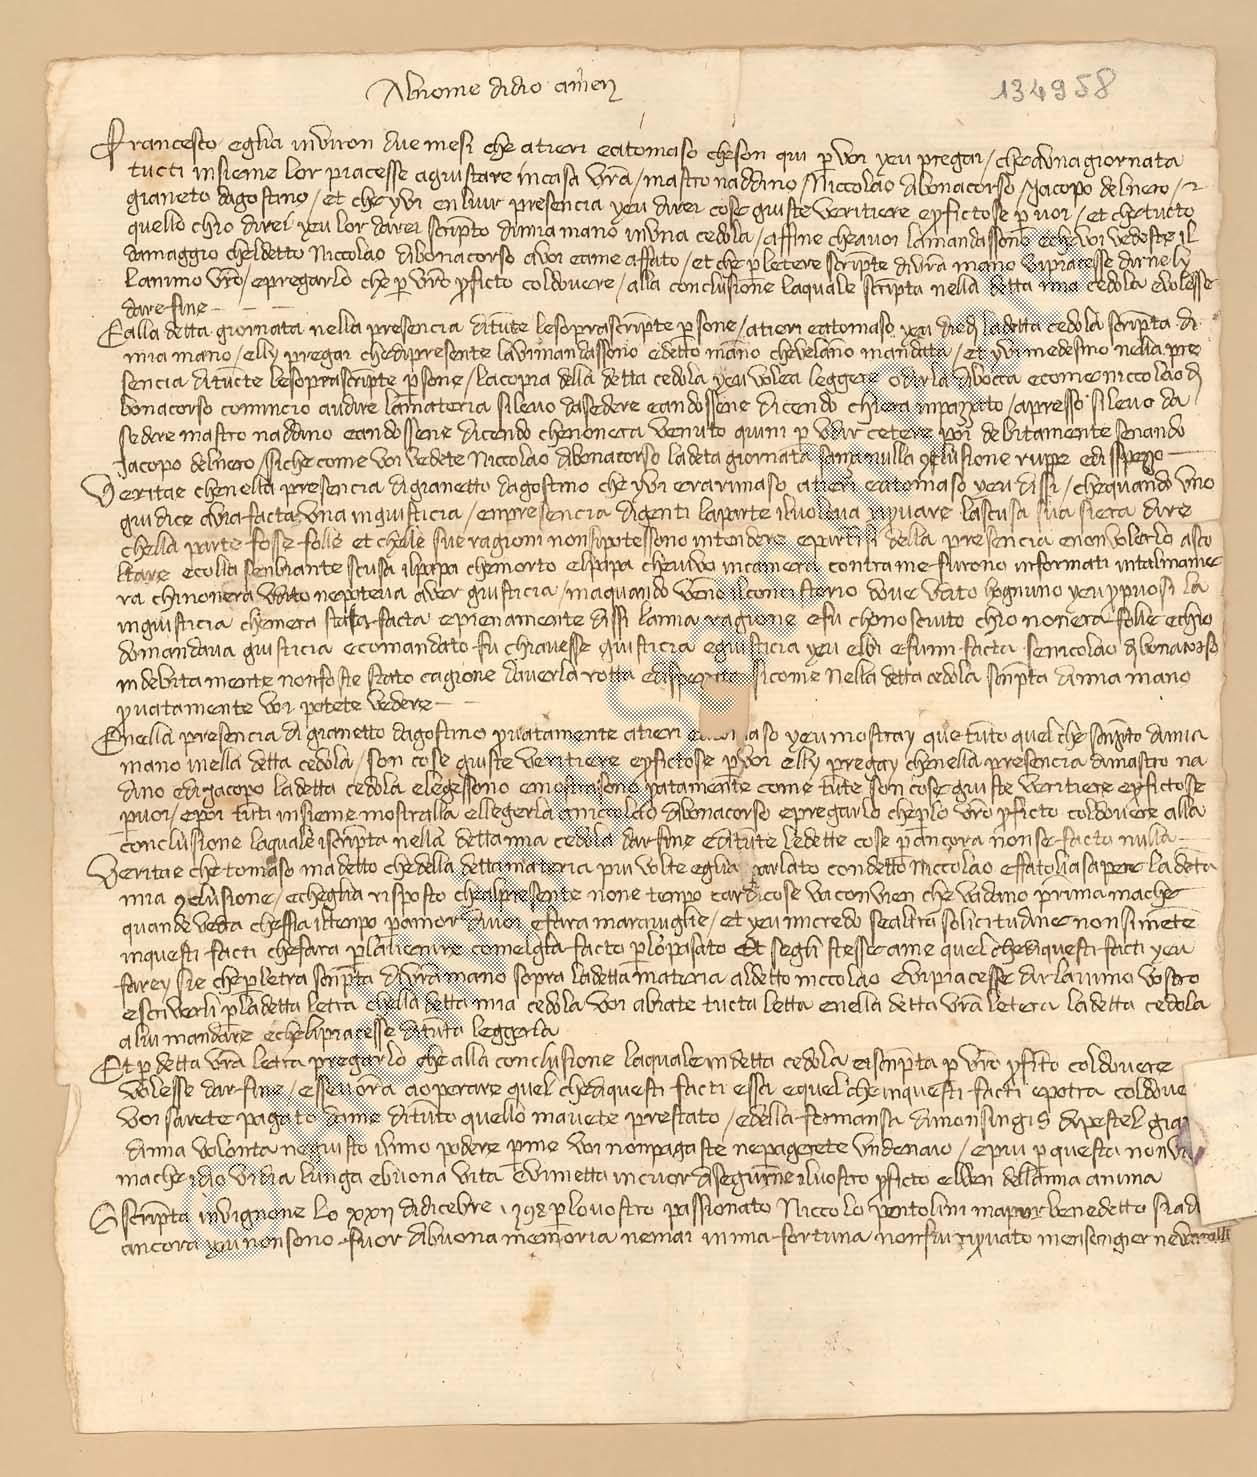 Al nome didio amen
134958
Francesco eglia inviron due mesi che atieri eatomaso cheson qui p voi yeu pregai / cheduna giornata
tucti insieme lor piacesse agiustare incasa vra / mastro naddino / Niccolao dbonacorso / Jacopo delnero / 
gianeto dagostino / et che yvi en lur presencia yeu direi cose giuste veritiere epfictose p voi / et chetucto
quello chio direi yeu lor darei scripto dimia mano inuna cedola / affine cheavoi lamandassono eche voi vedeste il
damaggio cheldetto Niccolao dbonacorso avoi eame affato / et che p letere scripte divra mano vipiacesse dirnely
lanimo vro / epregarlo che p vro pficto coldovere / alla conclusione laquale scripta nella detta mia cedola evolesse
dare fine
Ealla detta giornata nella presencia ditute lesoprascripte psone / atieri eatomaso yeu diedi ladetta cedola scripta di
mia mano / elly pregai chedipresente lavimandassono edetto mano chevelano mandata / et yvi medesmo nella pre
sencia ditucte lesoprascripte psone / lacopia della detta cedola yeu volea leggere odirla dibocca ecome niccolao d
bonacorso comincio audire lamateria silevo dasedere eandossene dicendo chiera inpazato / apresso silevo da
sedere mastro naddino eandossene dicendo chenonera venuto quivi p udir cetere poi debitamente senando
Jacopo delnero / siche come voi vedete Niccolao dbonacorso ladeta giornata sanza nulla conclusione ruppe edissipezo
Veritae chenella presencia digianetto dagostino che yvi erarimaso atieri eatomaso yeu dissi / chequando uno
giudice avia facta una ingiusticia / enpresencia digenti laparte iluoleva ripuare lascusa sua siera dire
chella parte fosse folle et chelle sue ragioni nonsipotessono intendere epartisi della presencia enonvolerlo asco
ltare ecolla senbiante scusa ilpapa chemorto elpapa chevivo incamera contra me furono informati intalmanie
ra chinonera udito nepoteva aver giusticia / maquando veno ilconcistorio dove udito dognuno yeu ypuosi la
ingiusticia chemera stata facta epienamente dissi lamia ragione efu chonosciuto chio nonera folle echio
domandava giusticia ecomandato fu chiavesse giusticia egiusticia yeu ebbi efumi facta senicolao dbonacorso
indebitamente nonfoste stato cagione daverla rotta sicome nella detta cedola scripta dimia mano
pvatamente voi potete vedere
Enella presencia di gianetto dagostino pvatamente atieri yeu mostray que tuto quel che scripto dimia
mano inella detta cedola / son cose giuste veritiere epfictose p voi elly pregay chenella presencia dimastro na
dino edigacopo ladetta cedola elegessono emostrasono patamente come tute son cose giuste veritiere epfictose
pvoi / epoi tuti insieme mostralla ellegerla anicolao dbonacorso epregarlo cheplo vro pficto coldovere alla
conclusione laquale iscripta nella detta mia cedola dar fine editute ledette cose p ancora non se facto nulla
Veritae che tomaso madetto che della detta materia piu volte eglia parlato con detto Niccolao effatolia sapere la deta
mia conclusione / echeglia risposto chealpresente none tenpo cardicose vaconvien che vadano prima mache
quando vedra chessia iltenpo pamor divoi efara maraviglie / et yeu micredo sealtra solicitudine non si mete
inquesti facti chefara plavenire comelgla facto plopasato Et segli stesse came quel chediquesti facti yeu
farey sie chepletra scripta di vra mano sopra ladetta materia aldetto niccolao evipiacesse dirlanimo vostro
escriverli pladetta letra chella detta mia cedola voi abiate tucta letta enella detta vra letera ladetta cedola
alui mandare echelipiacesse dituta leggerla
Et p detta vra letra pregarlo che alla conclusione laquale in detta cedola eiscripta p vro pfito coldovere
volesse dar fine / essevora aoperare quel chediquesti facti essa equelchenquesti facti epotra coldove
voi sarete pagato dime dituto quello mavete prestato / edella fermansa dimonsingis dipestel gia
dimia volonta negiusto ilmio podere pme voi nonpagaste nepagerete undenaio / epiu p questa nonvi
mache idio vi dia lunga ebuona vita evimetta incuor disegurne ilvostro pficto elben dellamia anima
Scripta invignone lo xxii didicebre 1398 plovostro passionato Niccolo pentolini mapur benedetto sia di
ancora yeu nonsono fuor dibuona memoria nemai inmia fortuna nonfui ripvato mensongier ne